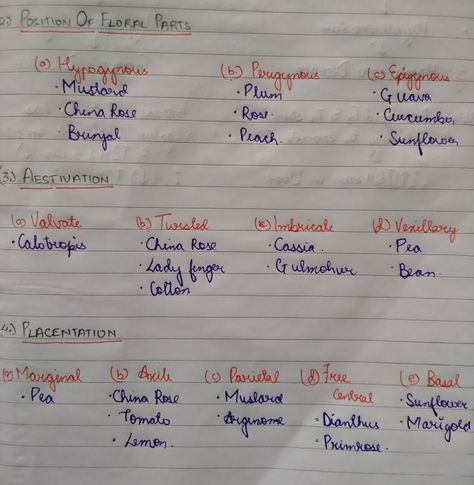 2.) POSITION OF FLORAL PARTS
(a) Hypogynous (b) Perigynous (c) Epigynous
· Mustard · Plum · Guava
· China Rose · Rose · Cucumber
· Brinjal · Peach · Sunflower
(3.) AESTIVATION
(a) Valvate (b) Twisted (c) Imbricate (d) Vexillary
· Calotropis · China Rose · Cassia · Pea
· Lady finger · Gulmohur · Bean
· Cotton
(4.) PLACENTATION
(a) Marginal (b) Axile (c) Parietal (d) Free (e) Basal
Central
· Pea · China Rose · Mustard · Sunflower
· Tomato · Arginome · Dianthus · Marigold
· Lemon · Primrose